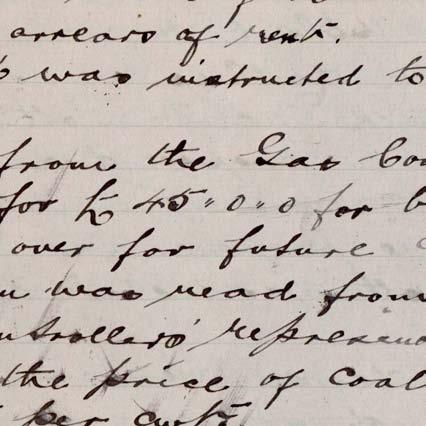 arrears of rent.
was instructed to
from the Gas
for £45"0"0 for
over for future
was read from
the price of Coal
per cwt